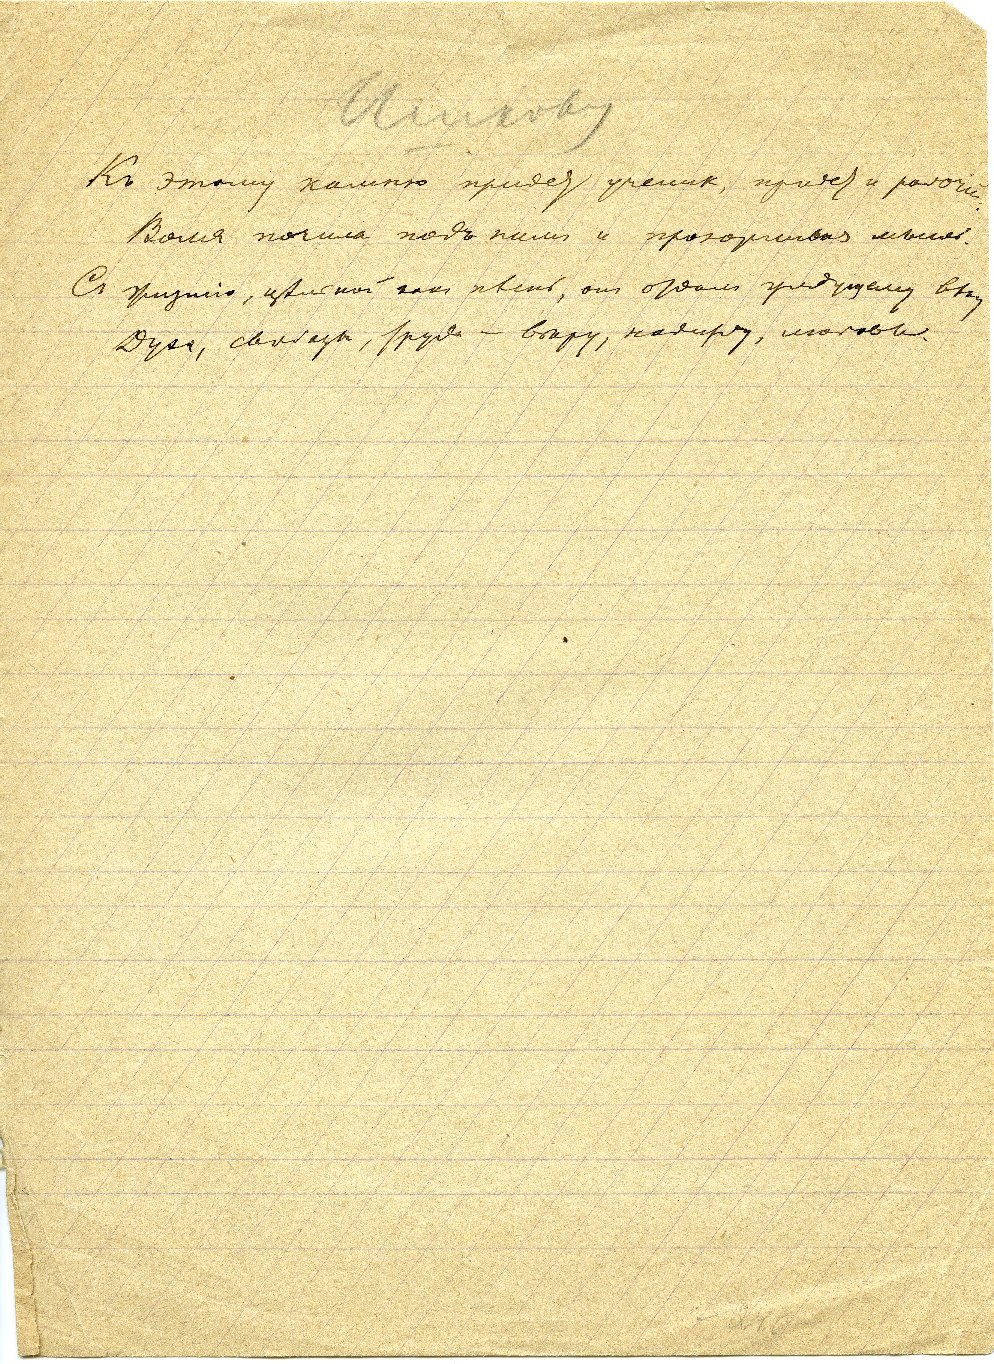 Ишкову
Къ этому камню придетъ ученик, придет и рабочій.
Воля почила подъ нимъ и прозорливая мысль.
Съ жизнію, цѣльной какъ пѣснь, онъ отдалъ грядущему вѣку
Духа, свободы, труда – вѣру, надежду, любовь.